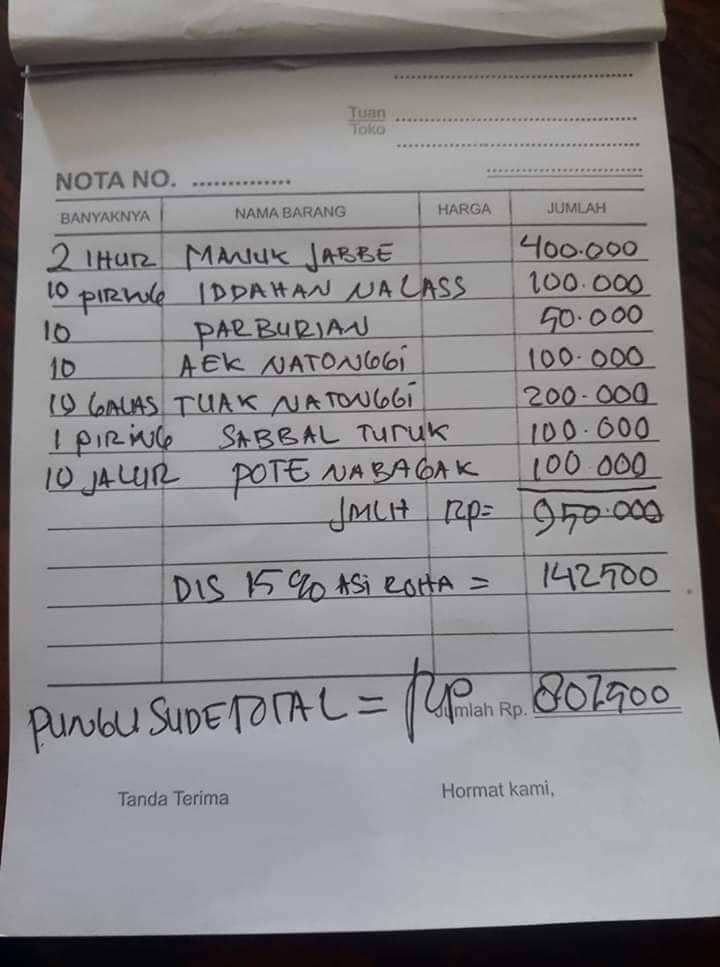 Tuan
Toko
NOTA NO.
BANYAKNYA NAMA BARANG HARGA JUMLAH
2 IHUR MANUK JABBE 400.000
10 PIRING IDDAHAN NALASS 100.000
10 PARBURIAN 50.000
10 AEK NATONGGI 100.000
10 GALAS TUAK NATONGGI 200.000
1 PIRING SABBAL TUTUK 100.000
10 JALUR POTE NABAGAK 100.000
JMLH Rp= 950.000
DIS 15% ASI ROHA = 142500
PUNGU SUDE TOTAL = Rp Jumlah Rp. 807500
Tanda Terima Hormat kami,